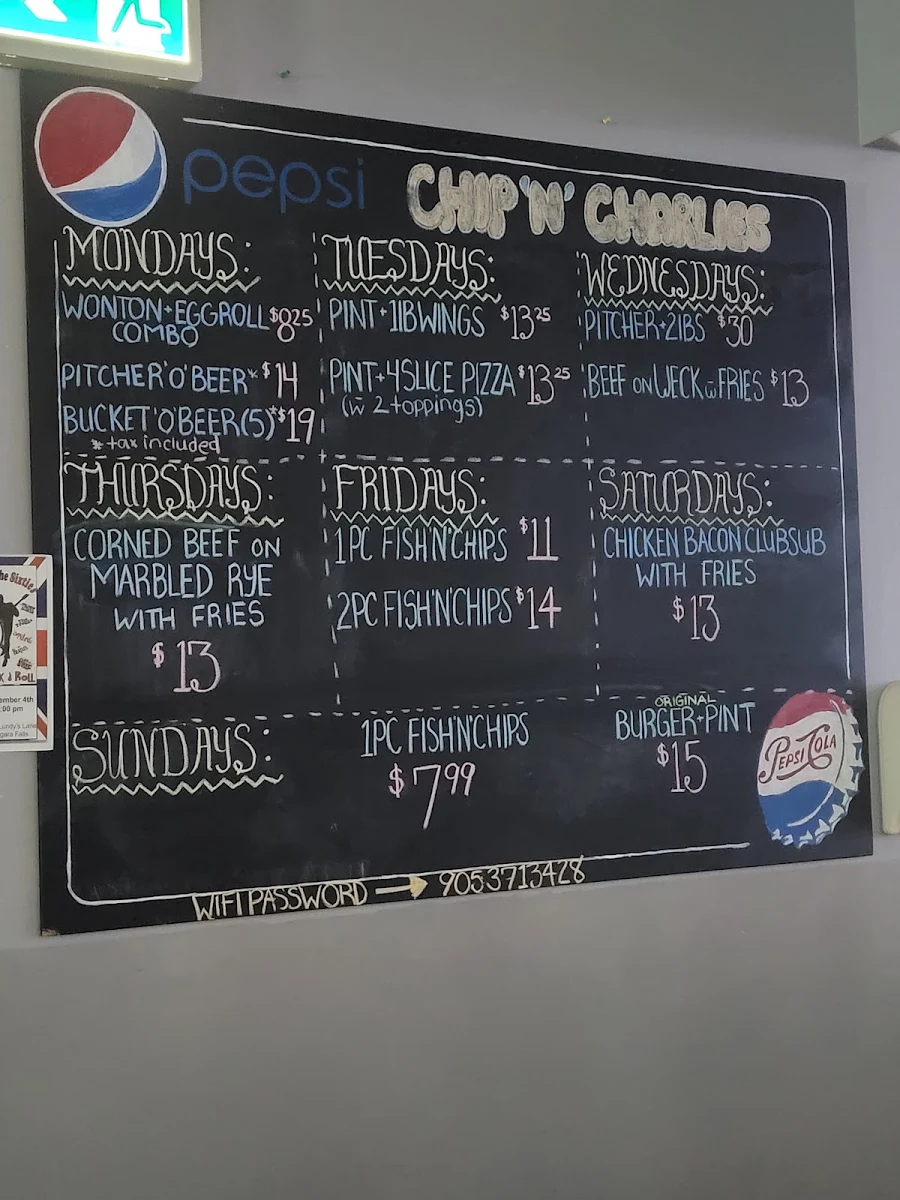 pepsi
CHIP 'N' CHARLIES
MONDAYS:
WONTON+EGGROLL $8.25
COMBO
PITCHER'O'BEER* $14
BUCKET'O'BEER(5)* $19
* tax included
TUESDAYS:
PINT+1lB WINGS $13.25
PINT+4SLICE PIZZA $13.25
(w̄ 2 toppings)
WEDNESDAYS:
PITCHER+2lBS $30
BEEF ON WECK w̄ FRIES $13
THURSDAYS:
CORNED BEEF ON
MARBLED RYE
WITH FRIES
$13
FRIDAYS:
1PC FISH'N'CHIPS $11
2PC FISH'N'CHIPS $14
SATURDAYS:
CHICKEN BACON CLUBSUB
WITH FRIES
$13
SUNDAYS:
1PC FISH'N'CHIPS
$7.99
ORIGINAL
BURGER+PINT
$15
PEPSI COLA
WIFI PASSWORD → 9053713428
the Sixties
& Roll
ember 4th
:00 pm
Lundy's Lane
agara Falls